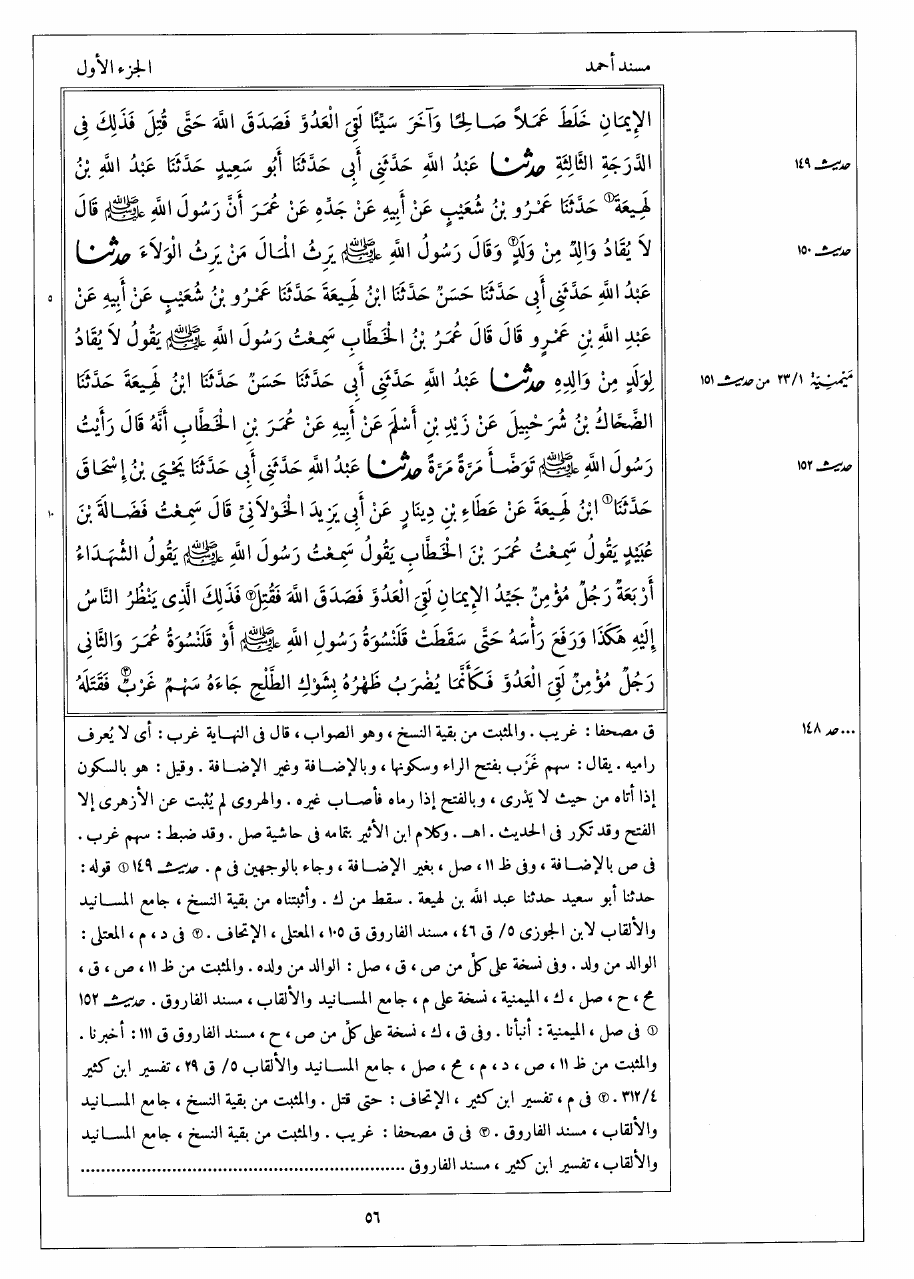 مسند أحمد
الجزء الأول
الإِيمَانِ خَلَطَ عَمَلاً صَالِحًا وَآخَرَ سَيِّئًا لَقِىَ الْعَدُوَّ فَصَدَقَ اللَّهَ حَتَّى قُتِلَ فَذَلِكَ فِى
الدَّرَجَةِ الثَّالِثَةِ حدثنا عَبْدُ اللَّهِ حَدَّثَنِى أَبِى حَدَّثَنَا أَبُو سَعِيدٍ حَدَّثَنَا عَبْدُ اللَّهِ بْنُ
حديث ١٤٩
لَهِيعَةَ① حَدَّثَنَا عَمْرُو بْنُ شُعَيْبٍ عَنْ أَبِيهِ عَنْ جَدِّهِ عَنْ عُمَرَ أَنَّ رَسُولَ اللَّهِ ﷺ قَالَ
لاَ يُقَادُ وَالِدٌ مِنْ وَلَدٍ② وَقَالَ رَسُولُ اللَّهِ ﷺ يَرِثُ الْمَالَ مَنْ يَرِثُ الْوَلاَءَ حدثنا
حديث ١٥٠
عَبْدُ اللَّهِ حَدَّثَنِى أَبِى حَدَّثَنَا حَسَنٌ حَدَّثَنَا ابْنُ لَهِيعَةَ حَدَّثَنَا عَمْرُو بْنُ شُعَيْبٍ عَنْ أَبِيهِ عَنْ
٥
عَبْدِ اللَّهِ بْنِ عَمْرٍو قَالَ قَالَ عُمَرُ بْنُ الْخَطَّابِ سَمِعْتُ رَسُولَ اللَّهِ ﷺ يَقُولُ لاَ يُقَادُ
لِوَلَدٍ مِنْ وَالِدِهِ حدثنا عَبْدُ اللَّهِ حَدَّثَنِى أَبِى حَدَّثَنَا حَسَنٌ حَدَّثَنَا ابْنُ لَهِيعَةَ حَدَّثَنَا
مَيْمَنِيَّة ٢٣/١ من حديث ١٥١
الضَّحَّاكُ بْنُ شُرَحْبِيلَ عَنْ زَيْدِ بْنِ أَسْلَمَ عَنْ أَبِيهِ عَنْ عُمَرَ بْنِ الْخَطَّابِ أَنَّهُ قَالَ رَأَيْتُ
رَسُولَ اللَّهِ ﷺ تَوَضَّأَ مَرَّةً مَرَّةً حدثنا عَبْدُ اللَّهِ حَدَّثَنِى أَبِى حَدَّثَنَا يَحْيَى بْنُ إِسْحَاقَ
حديث ١٥٢
حَدَّثَنَا① ابْنُ لَهِيعَةَ عَنْ عَطَاءِ بْنِ دِينَارٍ عَنْ أَبِى يَزِيدَ الْخَوْلاَنِىِّ قَالَ سَمِعْتُ فَضَالَةَ بْنَ
١٠
عُبَيْدٍ يَقُولُ سَمِعْتُ عُمَرَ بْنَ الْخَطَّابِ يَقُولُ سَمِعْتُ رَسُولَ اللَّهِ ﷺ يَقُولُ الشُّهَدَاءُ
أَرْبَعَةٌ رَجُلٌ مُؤْمِنٌ جَيِّدُ الإِيمَانِ لَقِىَ الْعَدُوَّ فَصَدَقَ اللَّهَ فَقُتِلَ② فَذَلِكَ الَّذِى يَنْظُرُ النَّاسُ
إِلَيْهِ هَكَذَا وَرَفَعَ رَأْسَهُ حَتَّى سَقَطَتْ قَلَنْسُوَةُ رَسُولِ اللَّهِ ﷺ أَوْ قَلَنْسُوَةُ عُمَرَ وَالثَّانِى
رَجُلٌ مُؤْمِنٌ لَقِىَ الْعَدُوَّ فَكَأَنَّمَا يُضْرَبُ ظَهْرُهُ بِشَوْكِ الطَّلْحِ جَاءَهُ سَهْمٌ غَرْبٌ③ فَقَتَلَهُ
ق مصحفا : غريب . والمثبت من بقية النسخ ، وهو الصواب ، قال فى النهاية غرب : أى لا يُعرف
...حد ١٤٨
راميه . يقال : سهم غَرَب بفتح الراء وسكونها ، وبالإضافة وغير الإضافة . وقيل : هو بالسكون
إذا أتاه من حيث لا يَدْرى ، وبالفتح إذا رماه فأصاب غيره . والهروى لم يُثبت عن الأزهرى إلا
الفتح وقد تكرر فى الحديث . اهـ . وكلام ابن الأثير بتمامه فى حاشية صل . وقد ضبط : سهم غرب .
فى ص بالإضافة ، وفى ظ ١١ ، صل ، بغير الإضافة ، وجاء بالوجهين فى م . حديث ١٤٩ ① قوله :
حدثنا أبو سعيد حدثنا عبد الله بن لهيعة . سقط من ك . وأثبتناه من بقية النسخ ، جامع المسانيد
والألقاب لابن الجوزى ٥/ ق ٤٦ ، مسند الفاروق ق ١٠٥ ، المعتلى ، الإتحاف . ② فى د ، م ، المعتلى :
الوالد من ولد . وفى نسخة على كلٍّ من ص ، ق ، صل : الوالد من ولده . والمثبت من ظ ١١ ، ص ، ق ،
مح ، ح ، صل ، ك ، الميمنية ، نسخة على م ، جامع المسانيد والألقاب ، مسند الفاروق . حديث ١٥٢
① فى صل ، الميمنية : أنبأنا . وفى ق ، ك ، نسخة على كلٍّ من ص ، ح ، مسند الفاروق ق ١١١ : أخبرنا .
والمثبت من ظ ١١ ، ص ، د ، م ، مح ، صل ، جامع المسانيد والألقاب ٥/ ق ٢٩ ، تفسير ابن كثير
٣١٢/٤ . ② فى م ، تفسير ابن كثير ، الإتحاف : حتى قتل . والمثبت من بقية النسخ ، جامع المسانيد
والألقاب ، مسند الفاروق . ③ فى ق مصحفا : غريب . والمثبت من بقية النسخ ، جامع المسانيد
والألقاب ، تفسير ابن كثير ، مسند الفاروق ................................................................
٥٦